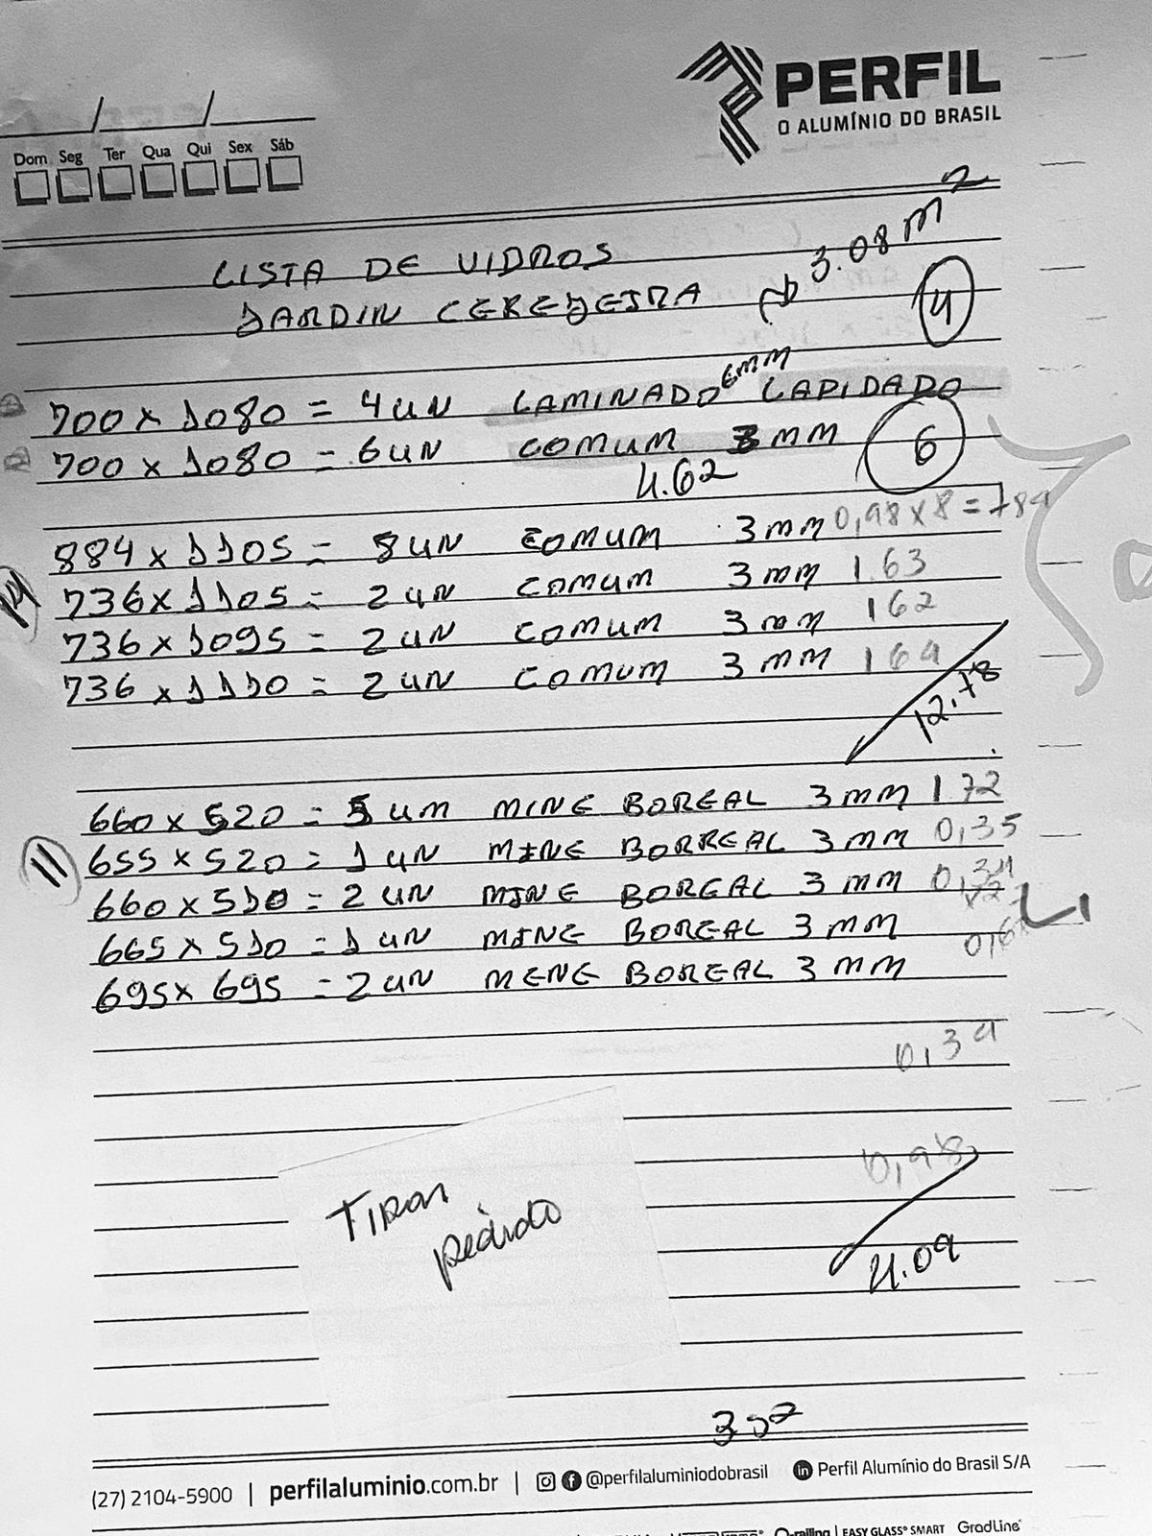 PERFIL
O ALUMÍNIO DO BRASIL
Dom Seg Ter Qua Qui Sex Sáb
LISTA DE VIDROS
JARDIN CEREJEIRA 3.08 m²
4
700 x 1080 = 4 UN LAMINADO 6MM LAPIDADO
700 x 1080 = 6 UN COMUM 3 MM 6
4.62
884 x 1105 = 8 UN COMUM 3 MM 0,98 x 8 = 784
736 x 1105 = 2 UN COMUM 3 MM 1.63
14
736 x 1095 = 2 UN COMUM 3 MM 162
736 x 1110 = 2 UN COMUM 3 MM 164
12.78
660 x 520 = 5 UM MINE BOREAL 3 MM 1.72
11
655 x 520 = 1 UN MINE BORREAL 3 MM 0,35
660 x 510 = 2 UN MINE BOREAL 3 MM 0,34
665 x 510 = 1 UN MINE BOREAL 3 MM
695 x 695 = 2 UN MENE BOREAL 3 MM
0,34
0,98
Tirar
pedido
4.09
(27) 2104-5900 | perfilaluminio.com.br | @perfilaluminiodobrasil Perfil Alumínio do Brasil S/A
EASY GLASS® SMART GradLine